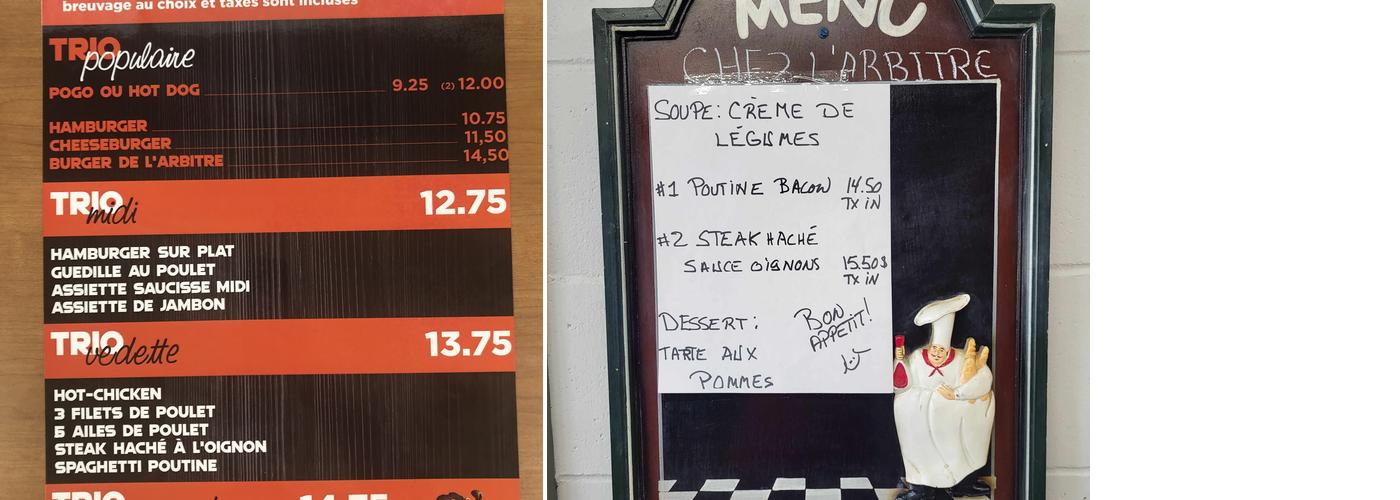 breuvage au choix et taxes sont incluses
TRIO
populaire
POGO OU HOT DOG 9.25 (2) 12.00
HAMBURGER 10.75
CHEESEBURGER 11,50
BURGER DE L'ARBITRE 14,50
TRIO midi 12.75
HAMBURGER SUR PLAT
GUEDILLE AU POULET
ASSIETTE SAUCISSE MIDI
ASSIETTE DE JAMBON
TRIO vedette 13.75
HOT-CHICKEN
3 FILETS DE POULET
5 AILES DE POULET
STEAK HACHÉ À L'OIGNON
SPAGHETTI POUTINE
TRIO 14.75
MENU
CHEZ L'ARBITRE
SOUPE: CRÈME DE
LÉGUMES
#1 POUTINE BACON 14.50
TX IN
#2 STEAK HACHÉ
SAUCE OIGNONS 15.50$
TX IN
DESSERT:
TARTE AUX
POMMES
BON
APPETIT!